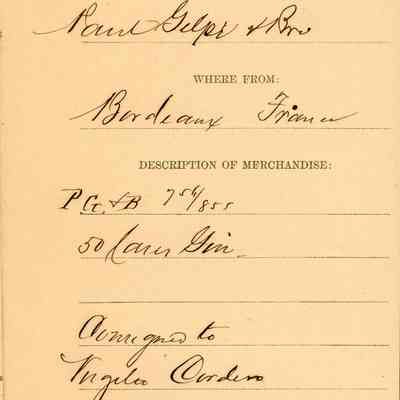 Paul Gelpi & Bro
WHERE FROM:
Bordeaux France
DESCRIPTION OF MERCHANDISE:
P G. & B 756/855
50 Cases Gin
Consigned to
Virgilio Cordero